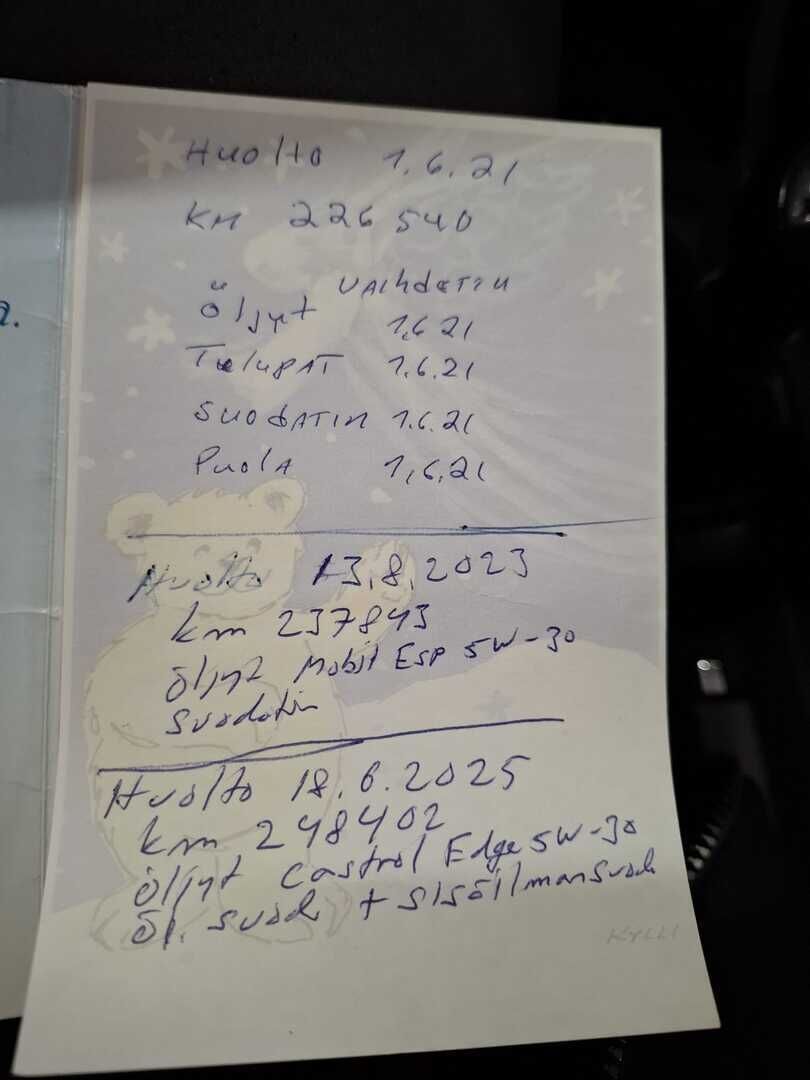 a.
Huolto 1.6.21
KM 226 540
VAIHdETTU
Öljyt 1.6.21
TulupAT 1.6.21
SUOdATIN 1.6.21
PuolA 1.6.21
Huolto 13.8.2023
km 237843
öljyt Mobil ESP 5W-30
Suodatin
Huolto 18.6.2025
km 248402
öljyt Castrol Edge 5W-30
öl. suod. + sisäilmansuod.
KYLLI